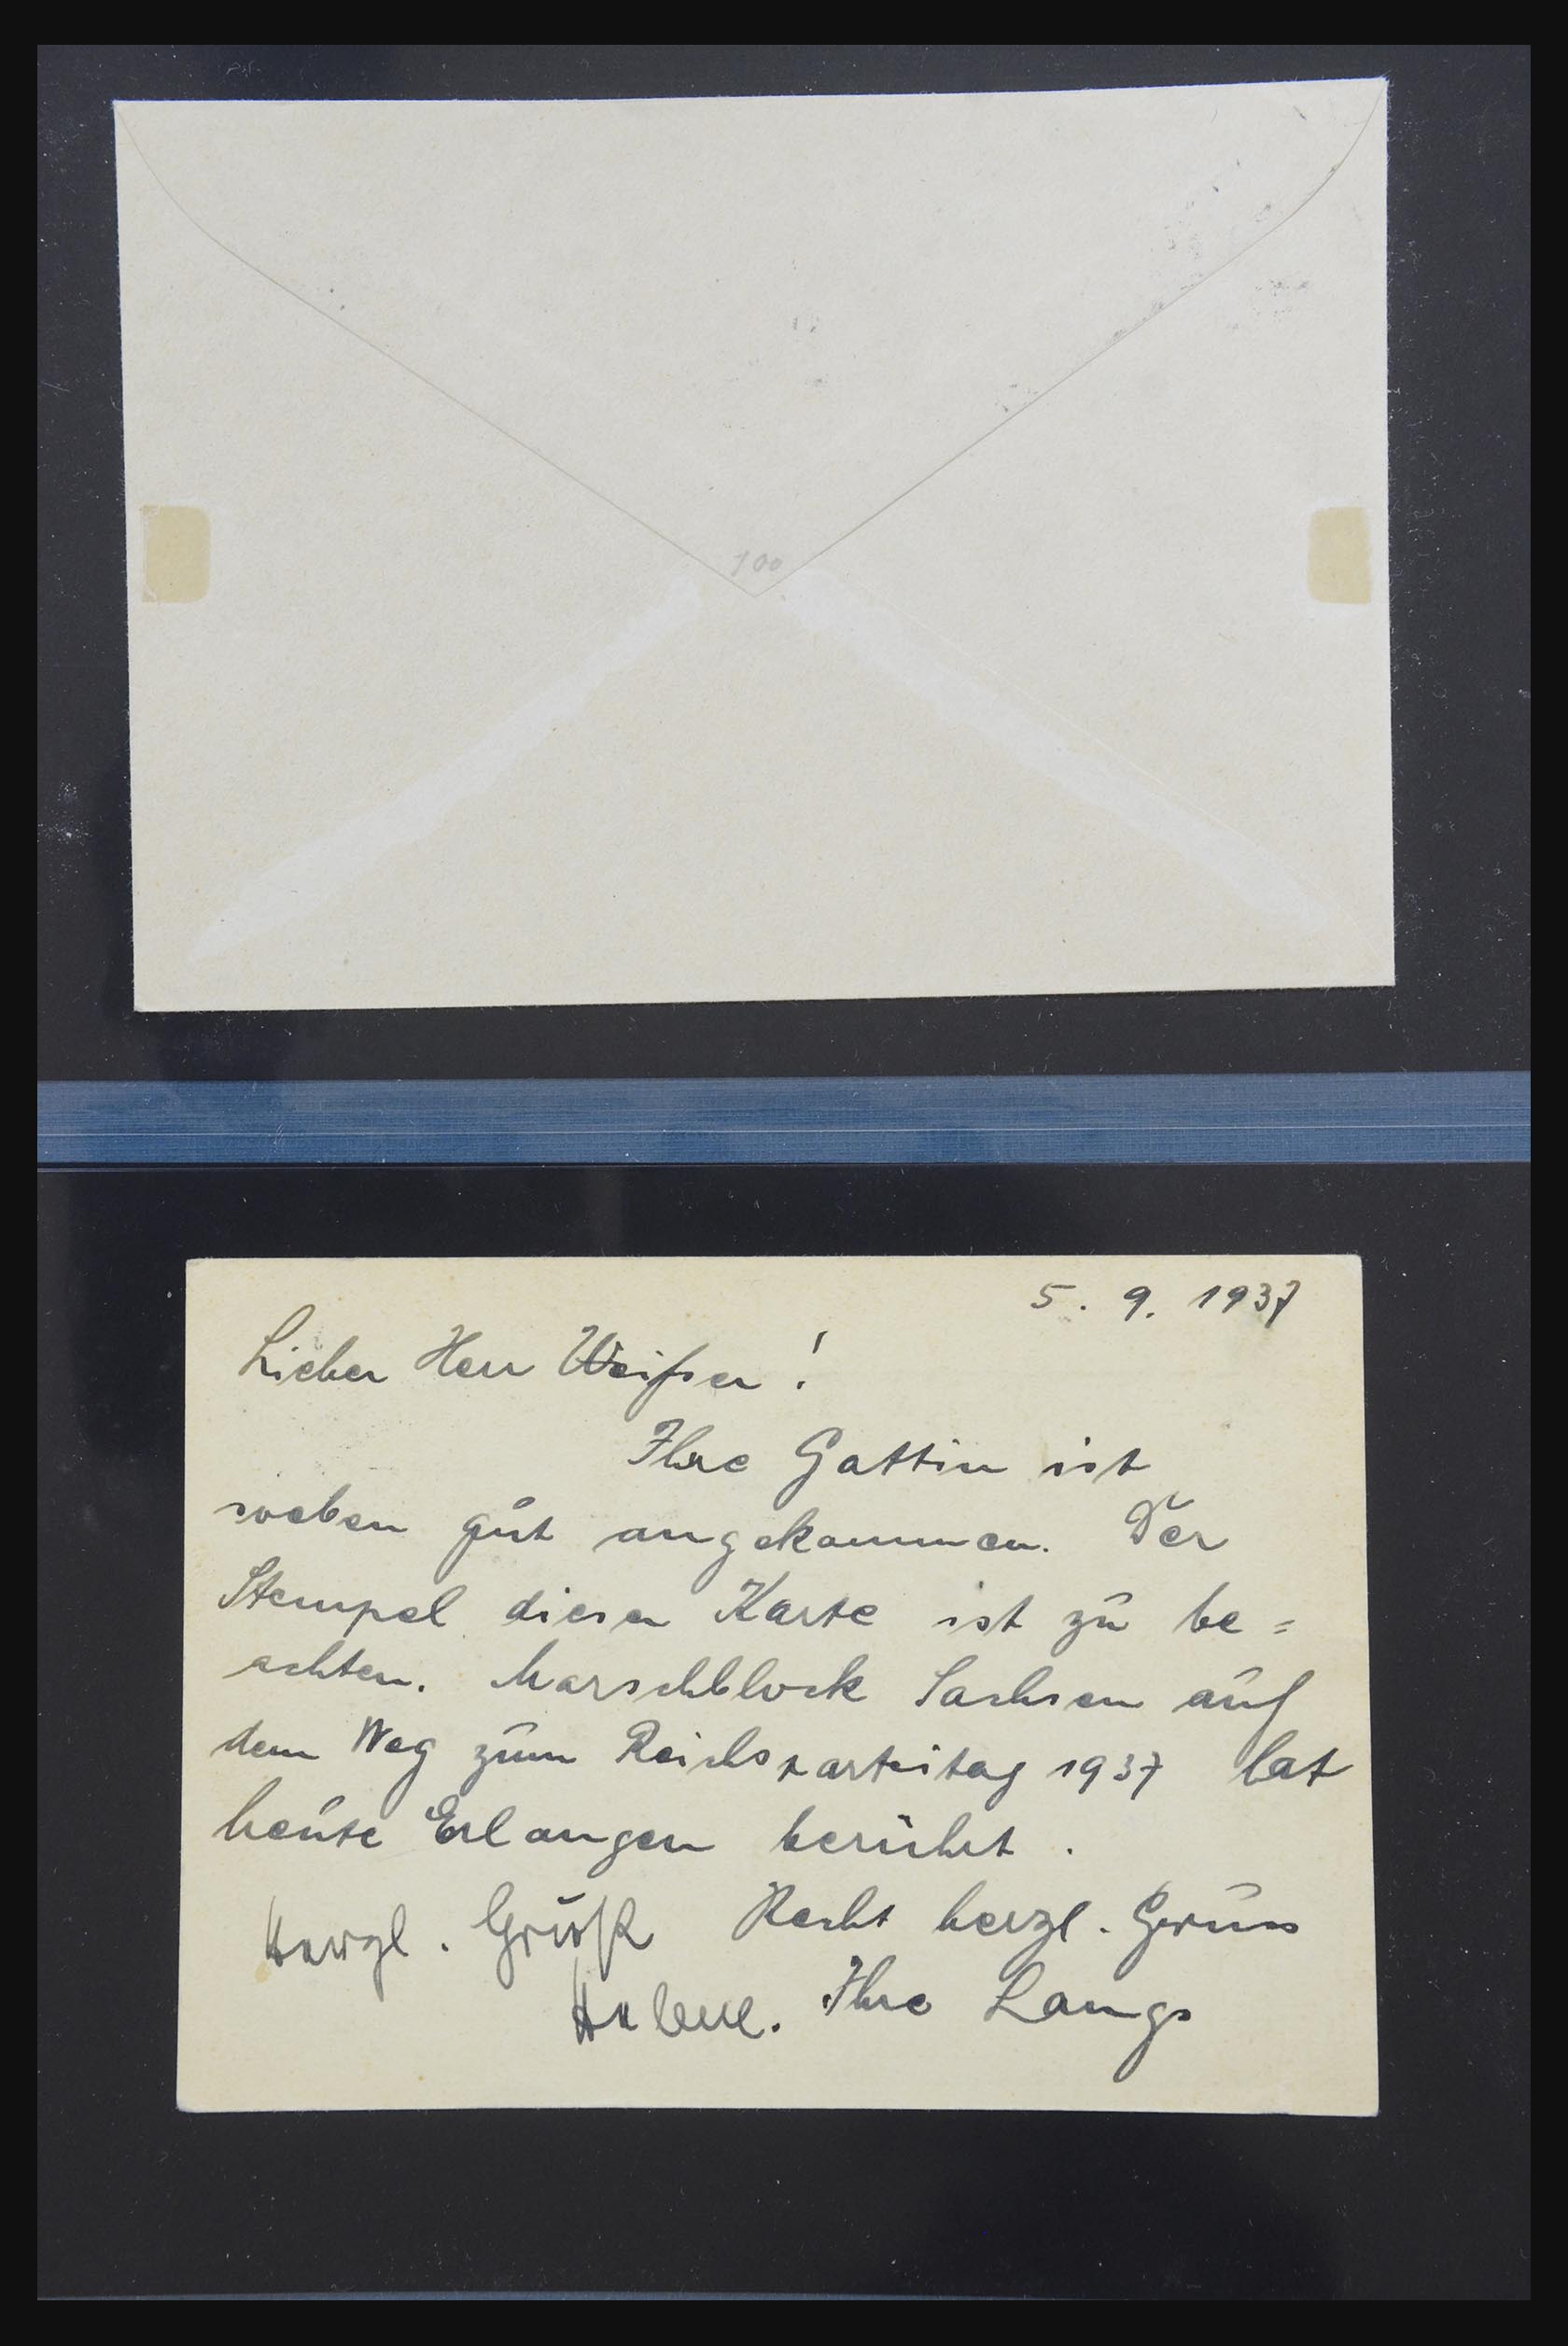 100
5. 9. 1937
Lieber Herr Weißer!
Ihre Gattin ist
soeben gut angekommen. Der
Stempel dieser Karte ist zu be=
achten. Marschblock Sachsen auf
dem Weg zum Reichsparteitag 1937 hat
heute Erlangen berührt.
Herzl. Grüße Recht herzl. Grüss
Helene. Ihre Langs